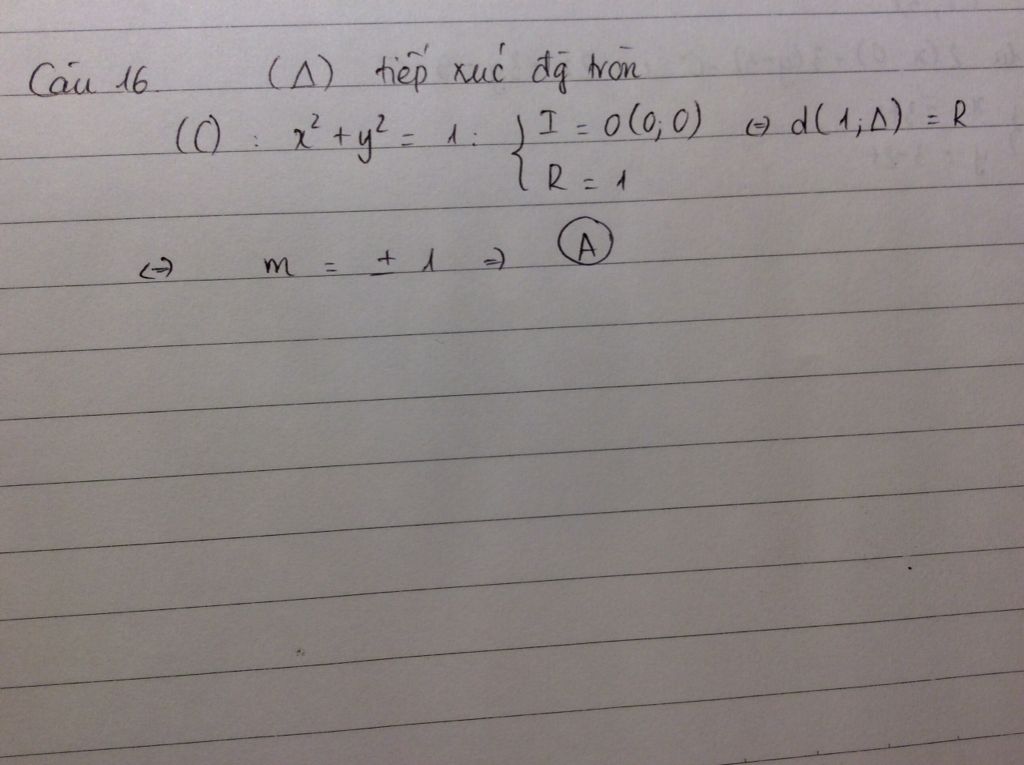 Câu 16 (Δ) tiếp xúc đg tròn
(C) : x² + y² = 1 : { I = O(0; 0) ⇔ d(1; Δ) = R
R = 1
⇔ m = ± 1 ⇒ A